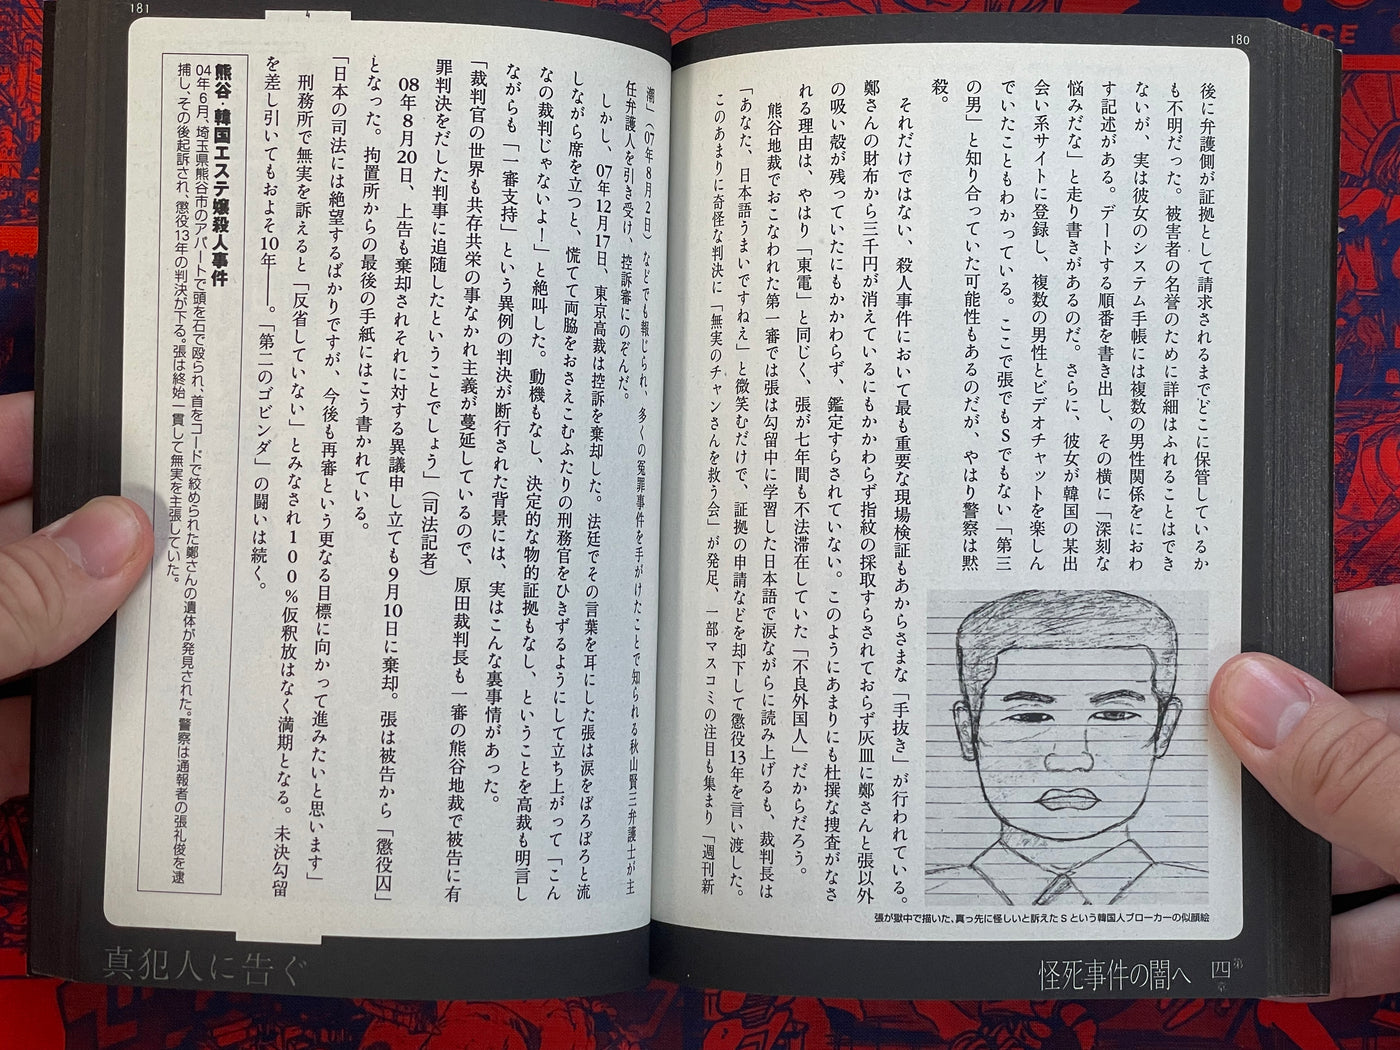 180
後に弁護側が証拠として請求されるまでどこに保管しているか
も不明だった。被害者の名誉のために詳細はふれることはでき
ないが、実は彼女のシステム手帳には複数の男性関係をにおわ
す記述がある。デートする順番を書き出し、その横に「深刻な
悩みだな」と走り書きがあるのだ。さらに、彼女が韓国の某出
会い系サイトに登録し、複数の男性とビデオチャットを楽しん
でいたこともわかっている。ここで張でもSでもない「第三
の男」と知り合っていた可能性もあるのだが、やはり警察は黙
殺。
それだけではない、殺人事件において最も重要な現場検証もあからさまな「手抜き」が行われている。
鄭さんの財布から三千円が消えているにもかかわらず指紋の採取すらされておらず灰皿に鄭さんと張以外
の吸い殻が残っていたにもかかわらず、鑑定すらされていない。このようにあまりにも杜撰な捜査がなさ
れる理由は、やはり「東電」と同じく、張が七年間も不法滞在していた「不良外国人」だからだろう。
熊谷地裁でおこなわれた第一審では張は勾留中に学習した日本語で涙ながらに読み上げるも、裁判長は
「あなた、日本語うまいですねえ」と微笑むだけで、証拠の申請などを却下して懲役13年を言い渡した。
このあまりに奇怪な判決に「無実のチャンさんを救う会」が発足、一部マスコミの注目も集まり「週刊新
張が獄中で描いた、真っ先に怪しいと訴えたSという韓国人ブローカーの似顔絵
第四章
怪死事件の闇へ
181
潮」(07年8月2日)などでも報じられ、多くの冤罪事件を手がけたことで知られる秋山賢三弁護士が主
任弁護人を引き受け、控訴審にのぞんだ。
しかし、07年12月17日、東京高裁は控訴を棄却した。法廷でその言葉を耳にした張は涙をぽろぽろと流
しながら席を立つと、慌てて両脇をおさえこむふたりの刑務官をひきずるようにして立ち上がって「こん
なの裁判じゃないよ!」と絶叫した。動機もなし、決定的な物的証拠もなし、ということを高裁も明言し
ながらも「一審支持」という異例の判決が断行された背景には、実はこんな裏事情があった。
「裁判官の世界も共存共栄の事なかれ主義が蔓延しているので、原田裁判長も一審の熊谷地裁で被告に有
罪判決をだした判事に追随したということでしょう」(司法記者)
08年8月20日、上告も棄却されそれに対する異議申し立ても9月10日に棄却。張は被告から「懲役囚」
となった。拘置所からの最後の手紙にはこう書かれている。
「日本の司法には絶望するばかりですが、今後も再審という更なる目標に向かって進みたいと思います」
刑務所で無実を訴えると「反省していない」とみなされ100%仮釈放はなく満期となる。未決勾留
を差し引いてもおよそ10年――。「第二のゴビンダ」の闘いは続く。
熊谷・韓国エステ嬢殺人事件
04年6月、埼玉県熊谷市のアパートで頭を石で殴られ、首をコードで絞められた鄭さんの遺体が発見された。警察は通報者の張礼俊を逮
捕し、その後起訴され、懲役13年の判決が下る。張は終始一貫して無実を主張していた。
真犯人に告ぐ